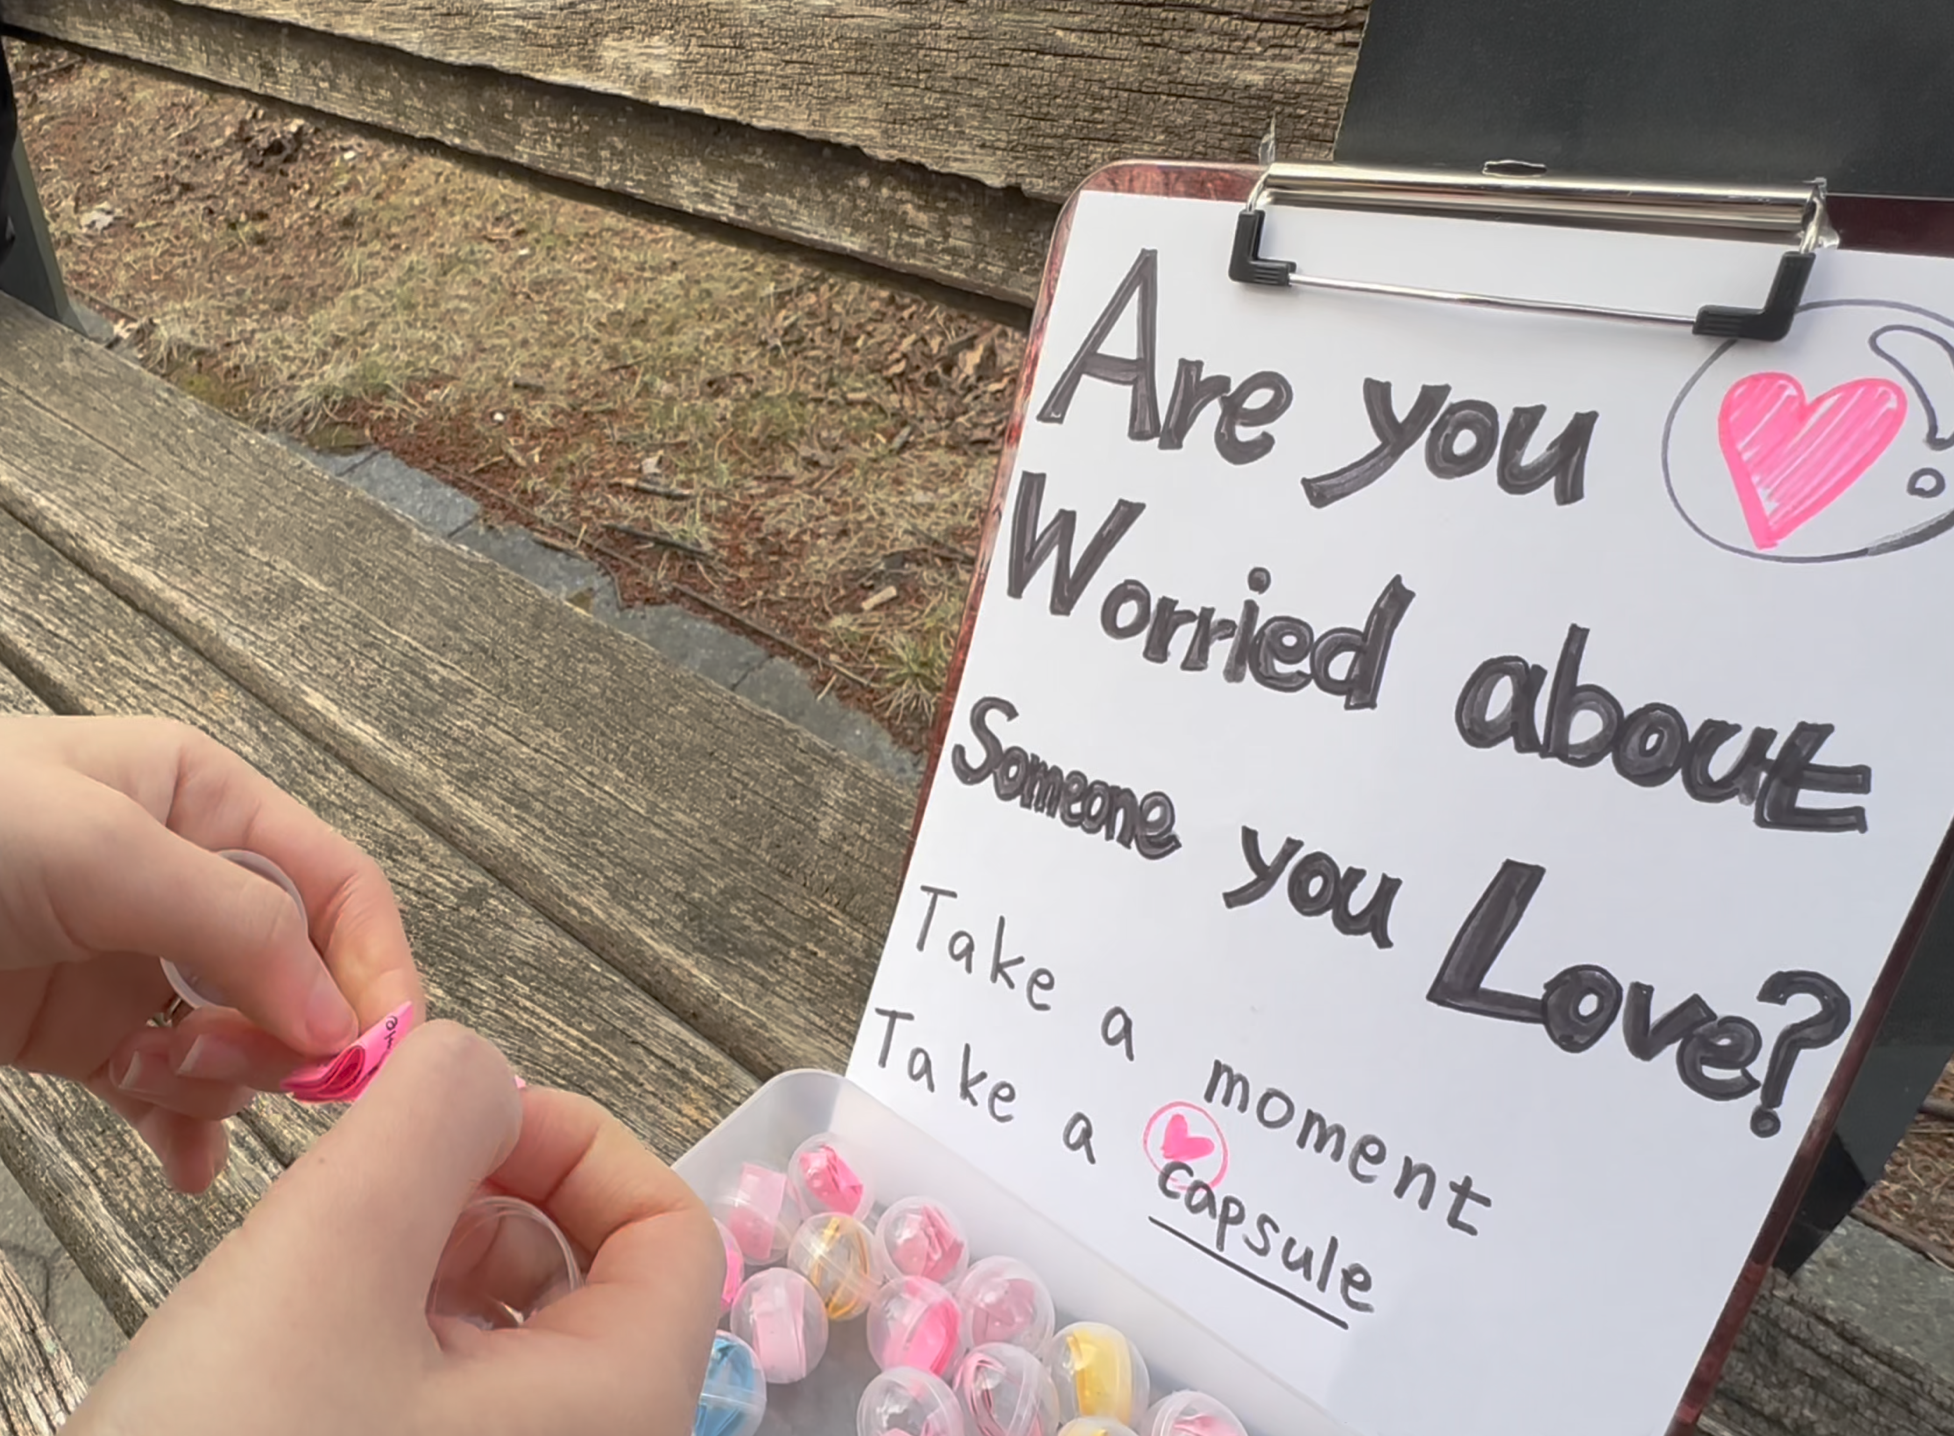 Are you
Worried about
Someone you Love?
Take a moment
Take a capsule